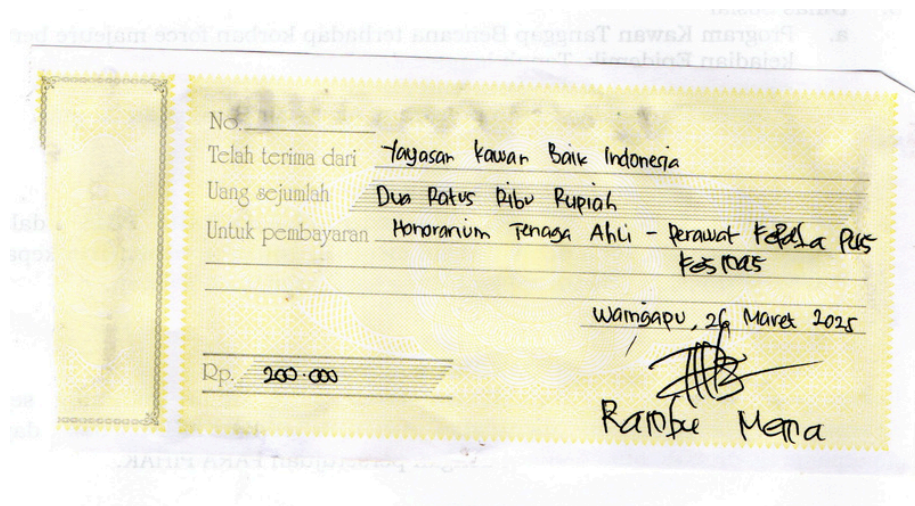 a. Program Kawan Tanggap Bencana terhadap korban force majeure
kejadian Epidemik
No.
Telah terima dari Yayasan Kawan Baik Indonesia
Uang sejumlah Dua Ratus Ribu Rupiah
Untuk pembayaran Honoranium Tenaga Ahli - Perawat Kepala Pus
kesmas
Waingapu, 26 Maret 2025
Rp. 200.000
Rambu Mema
persetujuan PARA PIHAK